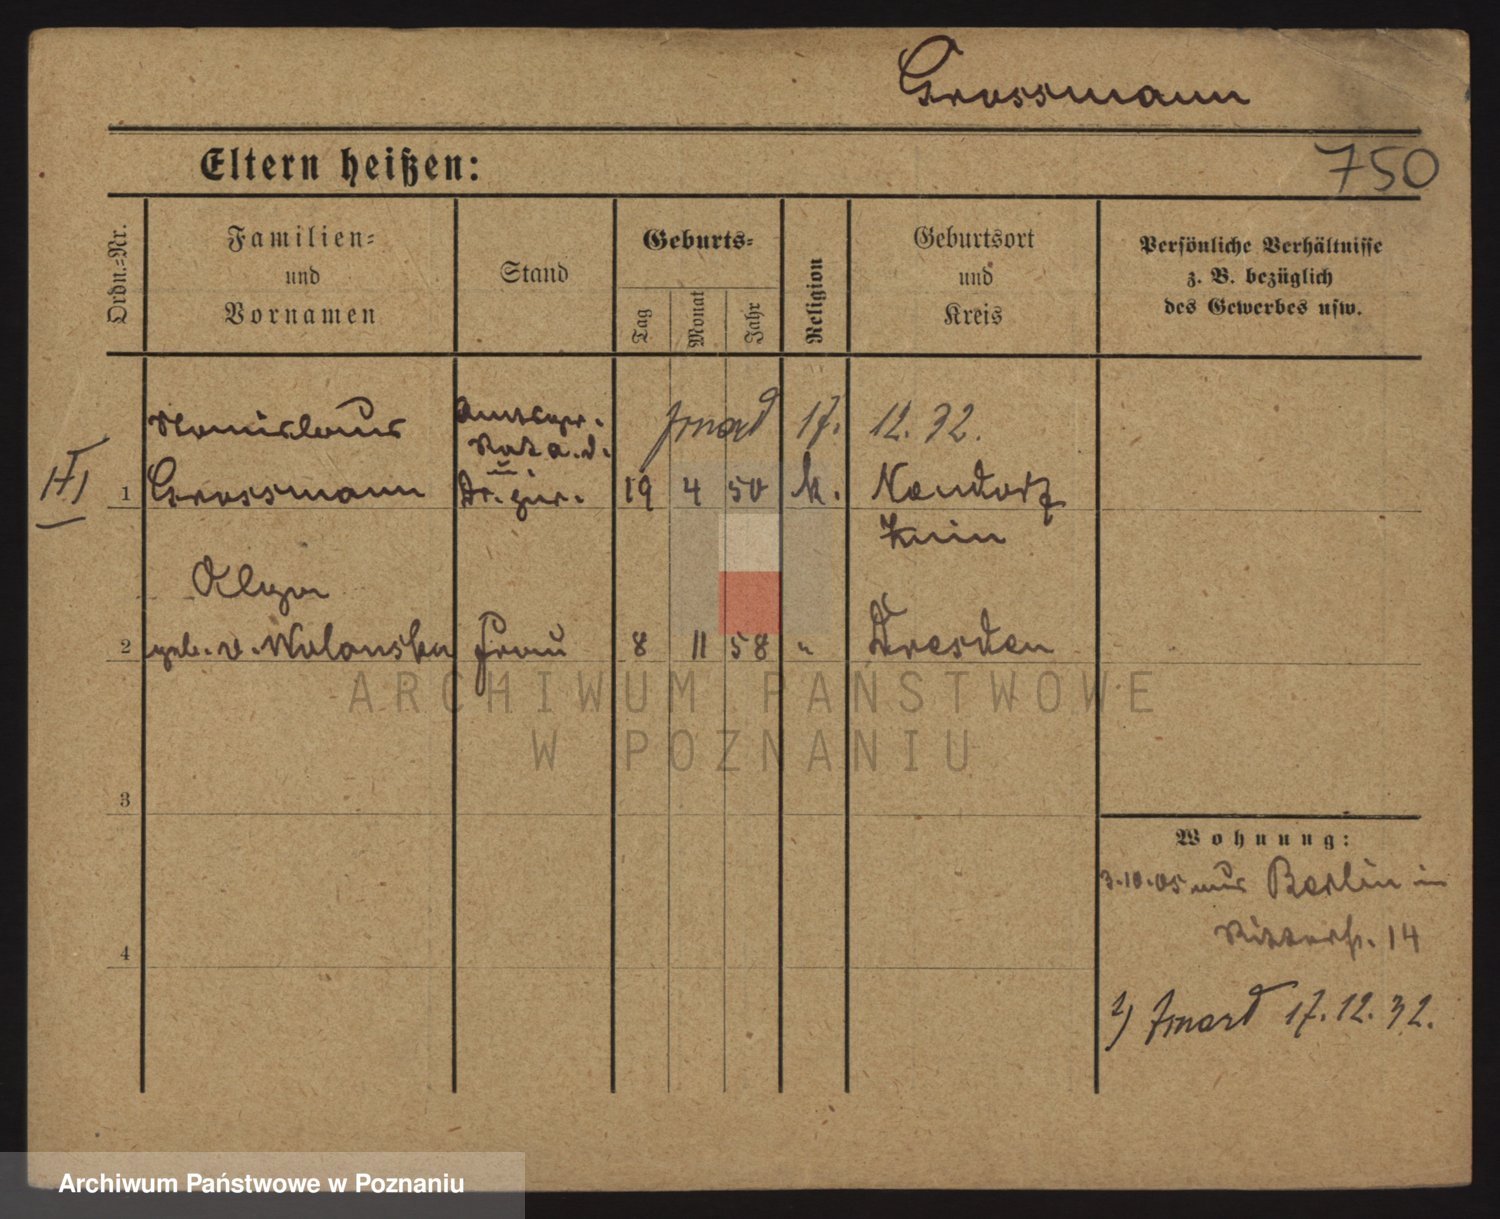 Grossmann
Eltern heißen:
750
Ordn.-Nr.
Familien-
und
Vornamen
Stand
Geburts-
Tag
Monat
Jahr
Religion
Geburtsort
und
Kreis
Persönliche Verhältnisse
z. B. bezüglich
des Gewerbes usw.
Stanislaus
Amtsger.
Rat a. D.
u.
zmarł 17. 12. 32.
1 Grossmann Dr. jur. 19 4 50 k. Neudorf
Olga
2 geb. v. Wolanska Frau 8 11 58 " Dresden
ARCHIWUM PAŃSTWOWE
W POZNANIU
3
Wohnung:
3.10.05 aus Berlin in
Ritterstr. 14
4
1) zmarł 17. 12. 32.
Archiwum Państwowe w Poznaniu